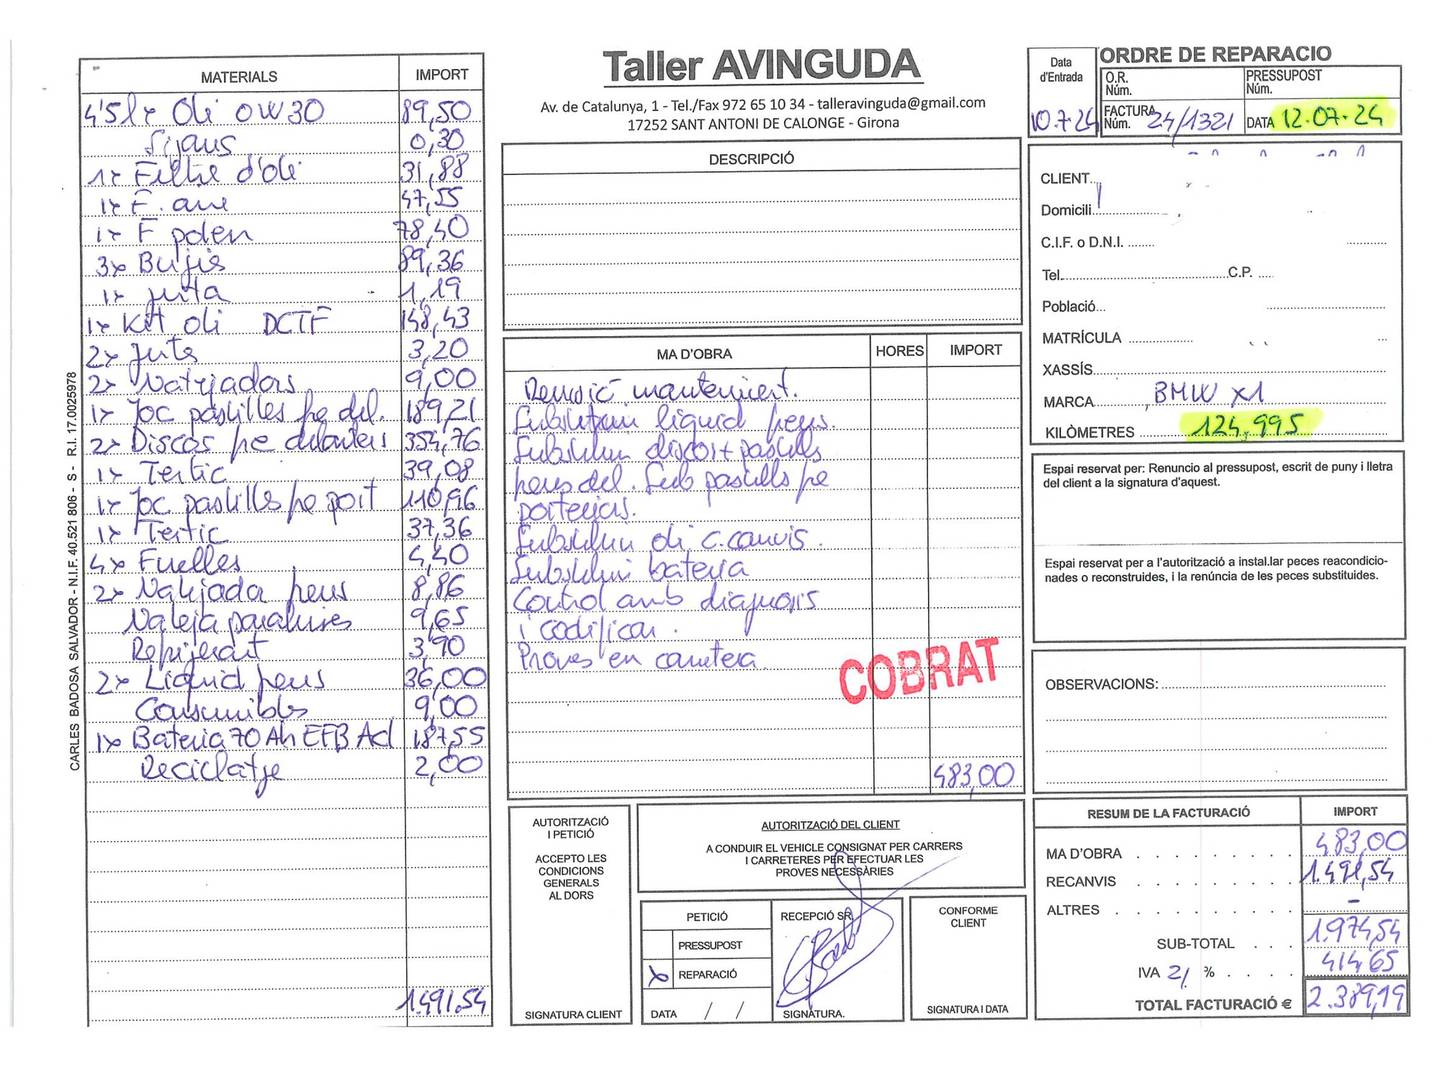 MATERIALS IMPORT
4'5 lx Oli 0W30 89,50
Sijaus 0,30
1x Filtre d'oli 31,88
1x F. aire 47,55
1x F polen 78,40
3x Bujis 89,36
1x junta 1,19
1x Kit oli DCTF 148,43
2x Junts 3,20
2x Natejadors 9,00
1x Joc pastilles fre del. 189,21
2x Discos fre delanters 354,76
1x Tertic 39,08
1x Joc pastills fre post 110,96
1x Tertic 37,36
4x Fuelles 4,40
2x Natejada frens 8,86
Neteja parabrises 9,65
Refrijerant 3,90
2x Liquid frens 36,00
Consumibles 9,00
1x Bateria 70 Ah EFB Acl 187,55
Reciclatje 2,00
1.491,54
CARLES BADOSA SALVADOR - N.I.F. 40.521 806 - S - R.I. 17.0025978
Taller AVINGUDA
Av. de Catalunya, 1 - Tel./Fax 972 65 10 34 - talleravinguda@gmail.com
17252 SANT ANTONI DE CALONGE - Girona
DESCRIPCIÓ
MA D'OBRA HORES IMPORT
Revisió manteniment.
Substituim liquid frens.
Substituim discos + pastills
frens del. Sub pastills fre
posteriors.
Substituim oli c. canvis.
Substituim bateria
Control amb diagnosis
i codificar.
Proves en carretera
COBRAT
483,00
AUTORITZACIÓ
I PETICIÓ
ACCEPTO LES
CONDICIONS
GENERALS
AL DORS
SIGNATURA CLIENT
AUTORITZACIÓ DEL CLIENT
A CONDUIR EL VEHICLE CONSIGNAT PER CARRERS
I CARRETERES PER EFECTUAR LES
PROVES NECESSÀRIES
PETICIÓ
PRESSUPOST
X REPARACIÓ
DATA / /
RECEPCIÓ SR.
SIGNATURA.
CONFORME
CLIENT
SIGNATURA I DATA
Data
d'Entrada
10.7.24
ORDRE DE REPARACIO
O.R.
Núm.
PRESSUPOST
Núm.
FACTURA
Núm. 24/1321
DATA 12.07.24
CLIENT
Domicili
C.I.F. o D.N.I.
Tel. C.P.
Població
MATRÍCULA
XASSÍS
MARCA BMW X1
KILÒMETRES 124,995
Espai reservat per: Renuncio al pressupost, escrit de puny i lletra
del client a la signatura d'aquest.
Espai reservat per a l'autorització a instal.lar peces reacondicio-
nades o reconstruides, i la renúncia de les peces substituides.
OBSERVACIONS:
RESUM DE LA FACTURACIÓ IMPORT
MA D'OBRA 483,00
RECANVIS 1.491,54
ALTRES -
SUB-TOTAL 1.974,54
IVA 21 % 414,65
TOTAL FACTURACIÓ € 2.389,19